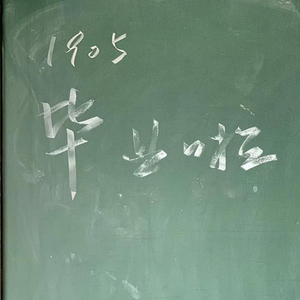 1905
毕业啦